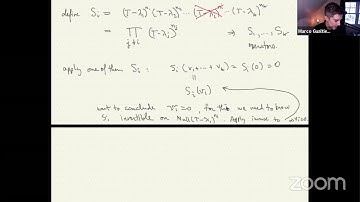 define S_i = (T-λ_1)^{n_1} (T-λ_2)^{n_2} ... (T-λ_i)^{n_i} ... (T-λ_k)^{n_k}
= ∏_{j≠i} (T-λ_j)^{n_j} ⇒ S_1, ..., S_k
apply one of them S_i : S_i (v_1 + ... + v_k) = S_i (0) = 0
=
S_i (v_i)
want to conclude v_i = 0, for this we need to know
S_i invertible on Null(T-λ_i)^{n_i}. Apply inverse to
Marco Gualtie...
zoom